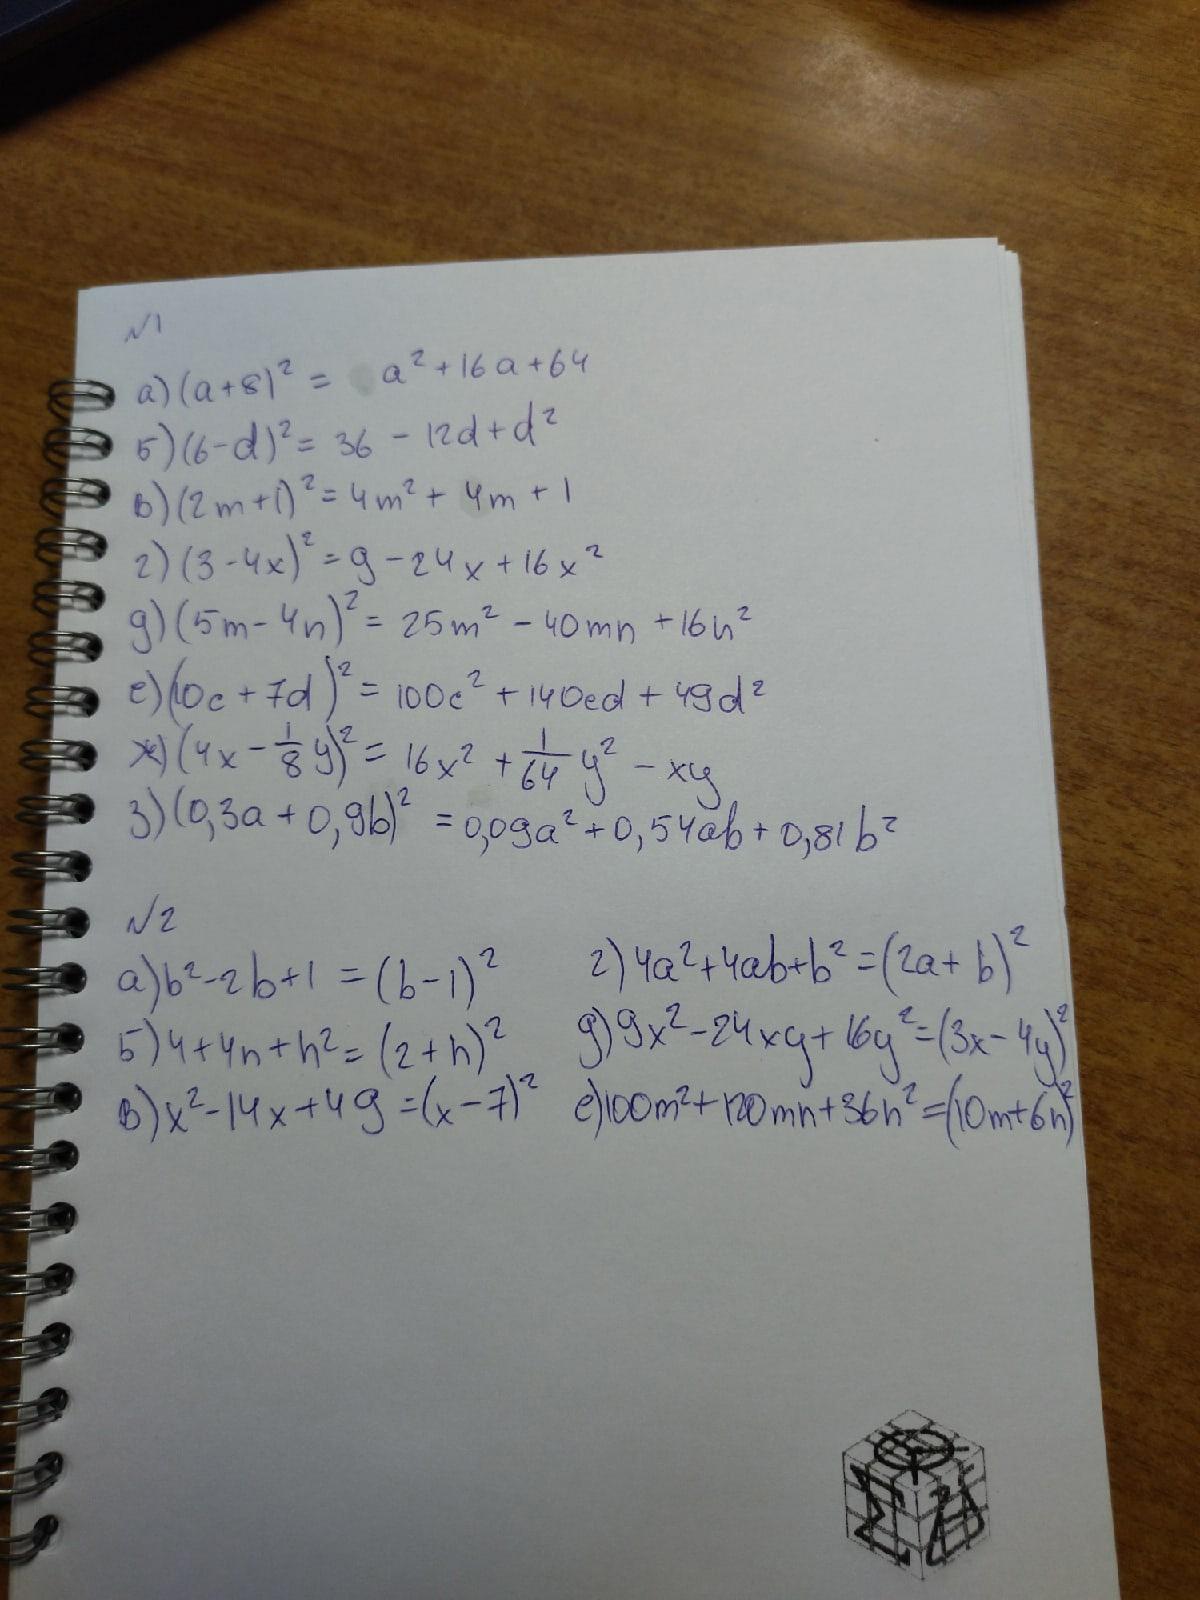 №1
а) (a+8)² = a² + 16a + 64
б) (6-d)² = 36 - 12d + d²
в) (2m+1)² = 4m² + 4m + 1
г) (3-4x)² = 9 - 24x + 16x²
д) (5m - 4n)² = 25m² - 40mn + 16n²
е) (10c + 7d)² = 100c² + 140cd + 49d²
ж) (4x - 1/8 y)² = 16x² + 1/64 y² - xy
з) (0,3a + 0,9b)² = 0,09a² + 0,54ab + 0,81b²
№2
а) b² - 2b + 1 = (b-1)²
б) 4 + 4n + n² = (2+n)²
в) x² - 14x + 49 = (x-7)²
г) 4a² + 4ab + b² = (2a+b)²
д) 9x² - 24xy + 16y² = (3x - 4y)²
е) 100m² + 120mn + 36n² = (10m + 6n)²